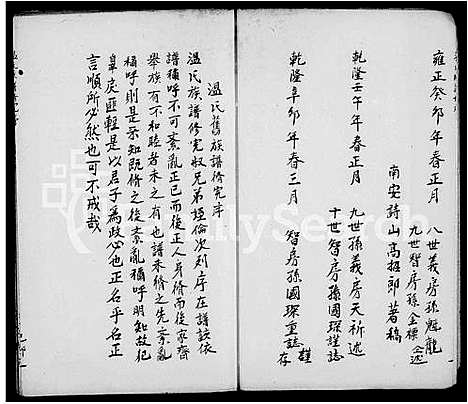 雍正癸卯年春正月
八世義房孫魁龍
九世智房孫金標 仝述
南安詩山高招郎著稿
乾隆壬午年春正月
九世孫義房天祈述
十世智房孫國琛謹誌
乾隆辛卯年春三月
智房孫國琛重誌 謹存
溫氏舊族譜修完序
溫氏族譜修完叔兄弟姪倫次列序在譜該依
譜稱呼不可紊亂正己而後正人身修而後家齊
舉族有不和睦者未之有也譜未修之先紊亂
稱呼則是未知既修之後紊亂稱呼明知故犯
辜戾匪輕是以君子為政必也正名乎名正
言順所必然也可不戒哉
FamilySearch